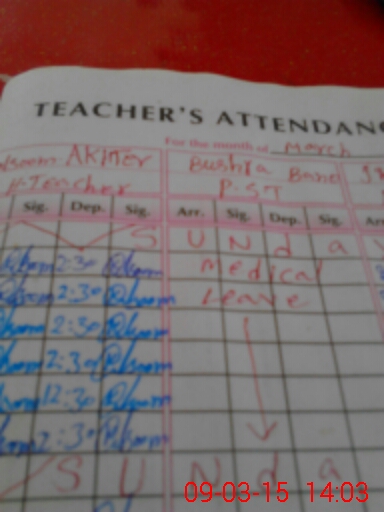 TEACHER'S ATTENDANC
For the month of March
Akhter Bushra Bano
H.Teacher P.ST
Sig. Dep. Sig. Arr. Sig. Dep. Sig. Arr
S U N d a Y
2:30 Medical
2:30 Leave
2:30
2:30
12:30
2:30
S U N d a
09-03-15 14:03